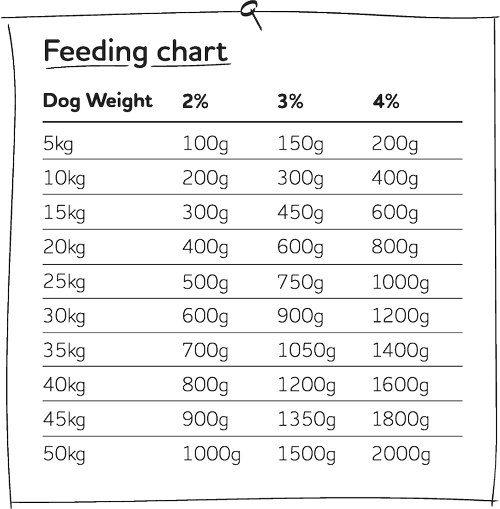 Feeding chart
Dog Weight 2% 3% 4%
5kg 100g 150g 200g
10kg 200g 300g 400g
15kg 300g 450g 600g
20kg 400g 600g 800g
25kg 500g 750g 1000g
30kg 600g 900g 1200g
35kg 700g 1050g 1400g
40kg 800g 1200g 1600g
45kg 900g 1350g 1800g
50kg 1000g 1500g 2000g